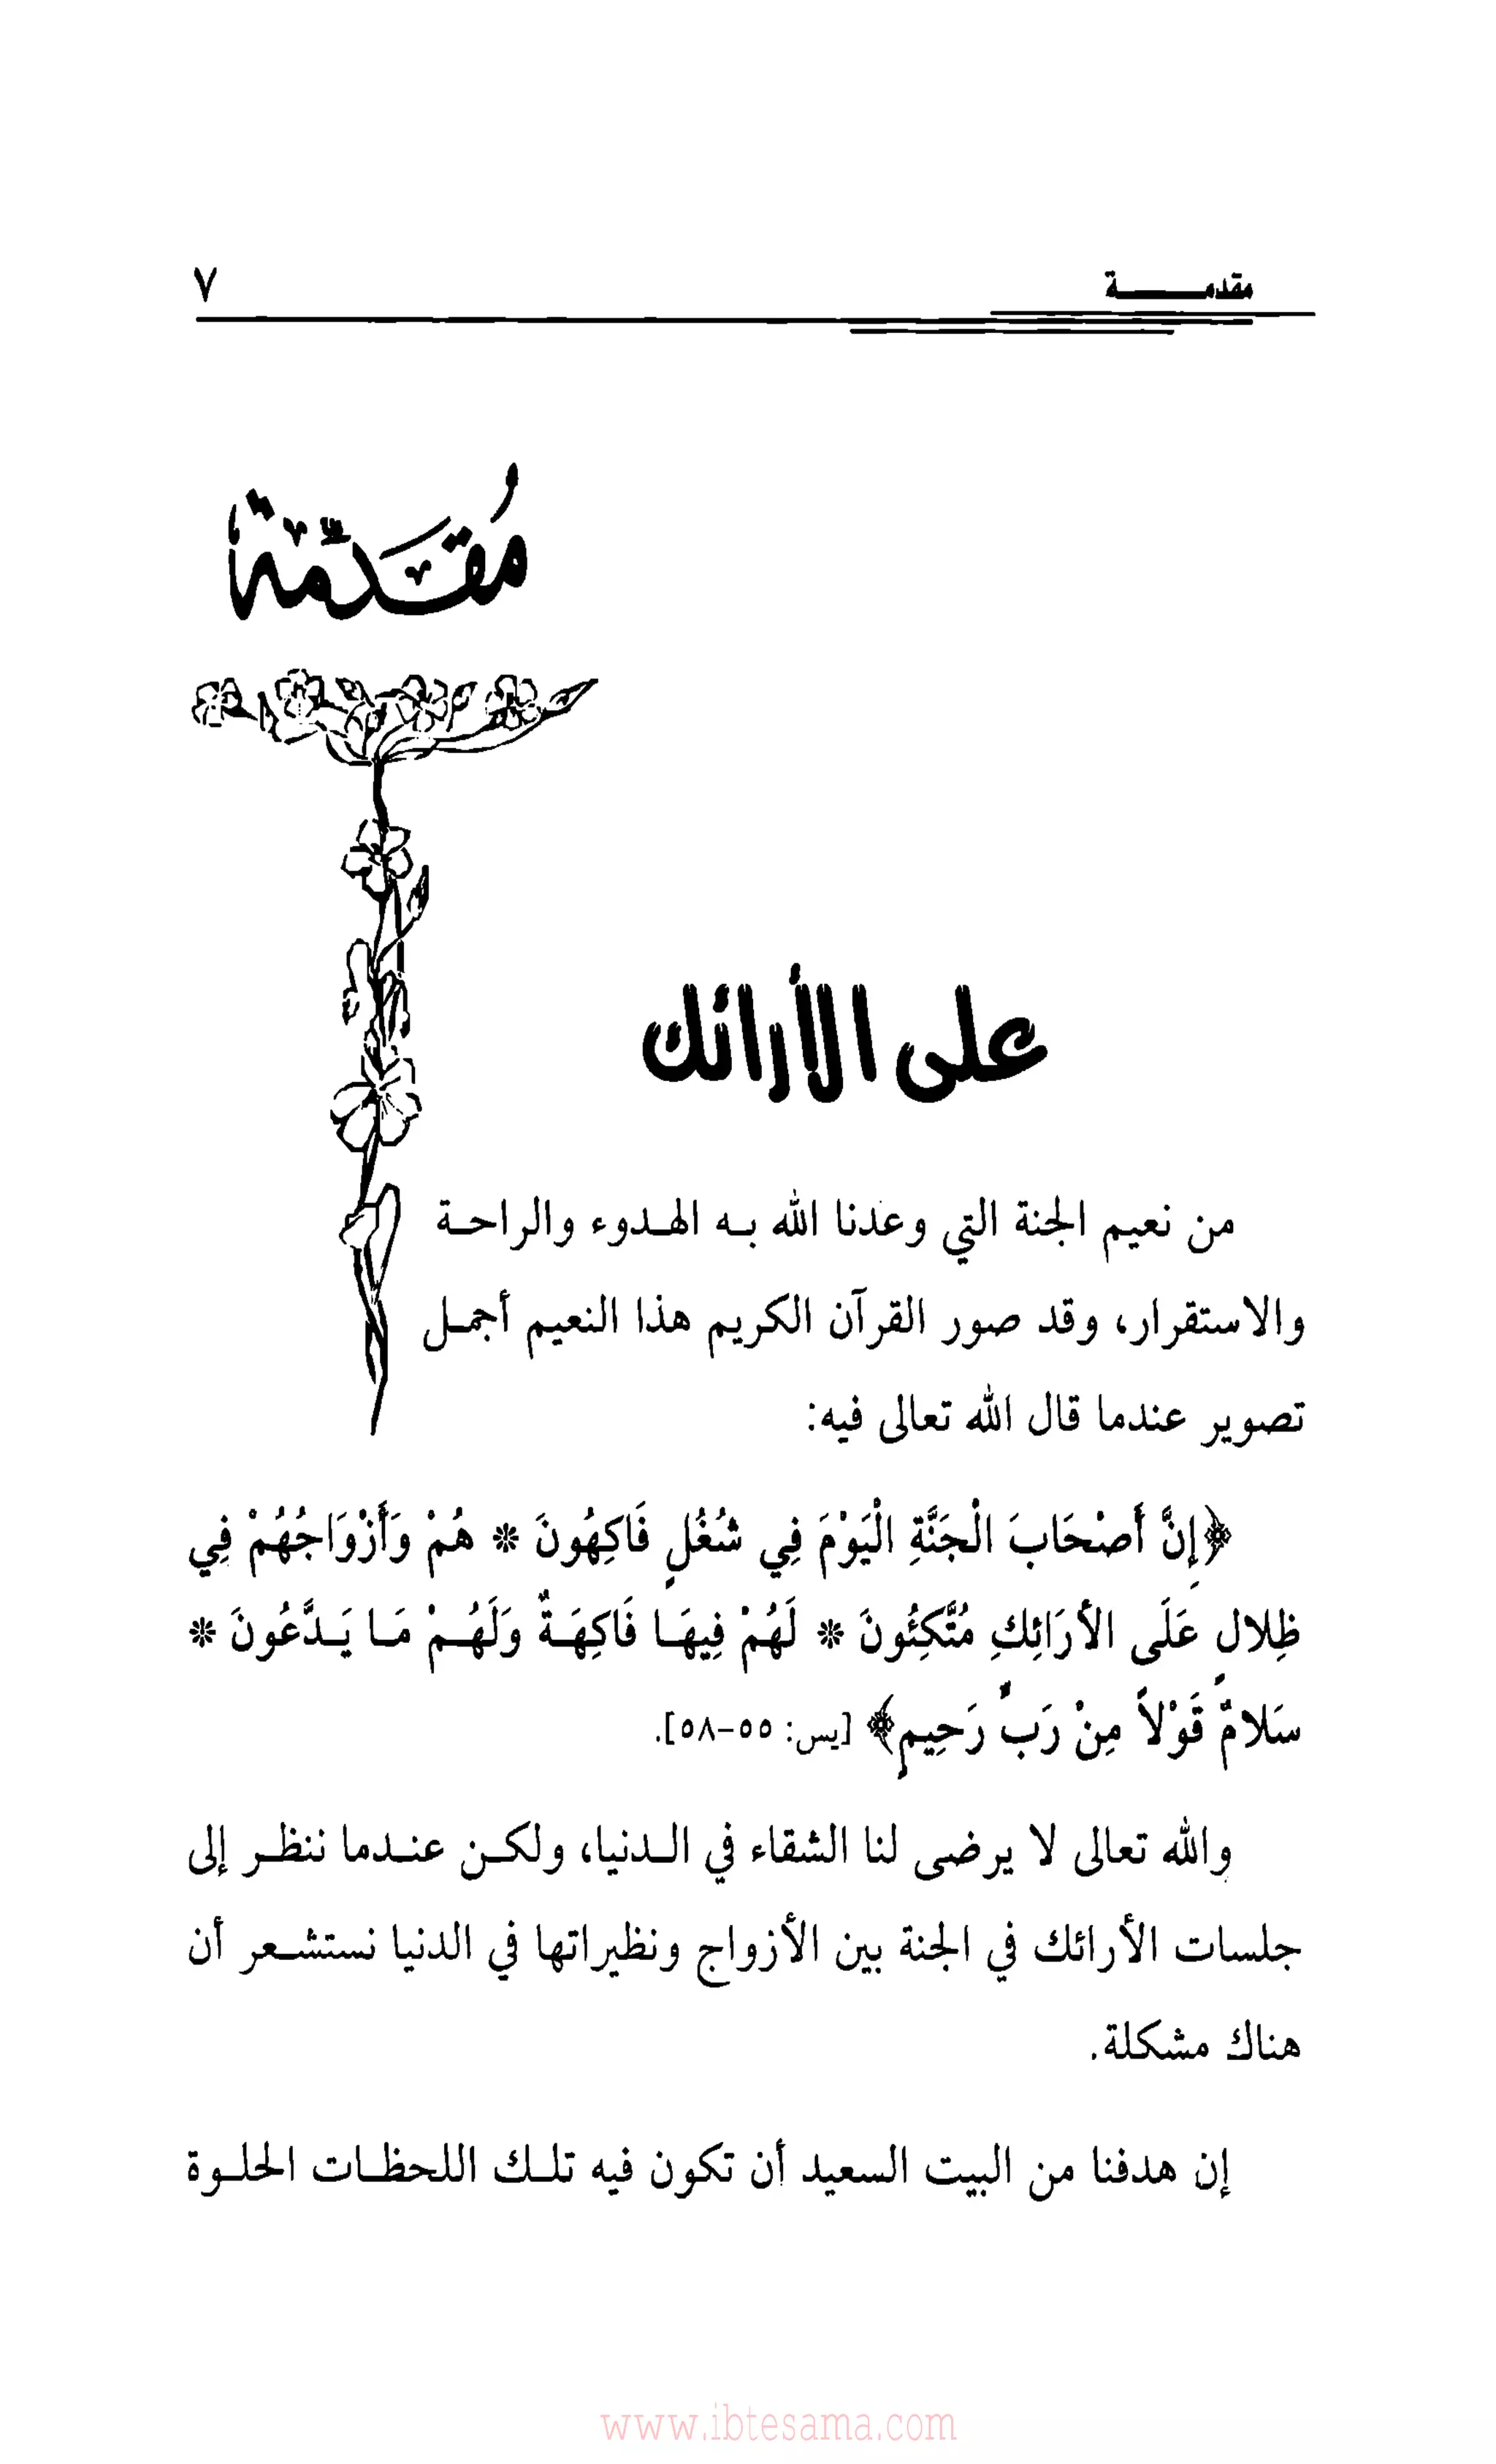 مقدمــــــة ٧
مُقَدِّمَةٌ
على الأرائك
من نعيم الجنة التي وعدنا الله بـه الهـدوء والراحـة
والاستقرار، وقد صور القرآن الكريم هذا النعيم أجمـل
تصوير عندما قال الله تعالى فيه:
﴿إِنَّ أَصْحَابَ الْجَنَّةِ الْيَوْمَ فِي شُغُلٍ فَاكِهُونَ * هُمْ وَأَزْوَاجُهُمْ فِي
ظِلالٍ عَلَى الأَرَائِكِ مُتَّكِئُونَ * لَهُمْ فِيهَـا فَاكِهَـةٌ وَلَهُـمْ مَـا يَـدَّعُونَ *
سَلامٌ قَوْلاً مِنْ رَبٍّ رَحِيمٍ﴾ [يس: ٥٥-٥٨].
والله تعالى لا يرضى لنا الشقاء في الـدنيا، ولكـن عنـدما ننظـر إلى
جلسات الأرائك في الجنة بين الأزواج ونظيراتها في الدنيا نستشـعر أن
هناك مشكلة.
إن هدفنا من البيت السعيد أن تكون فيه تلـك اللحظـات الحلـوة
www.ibtesama.com